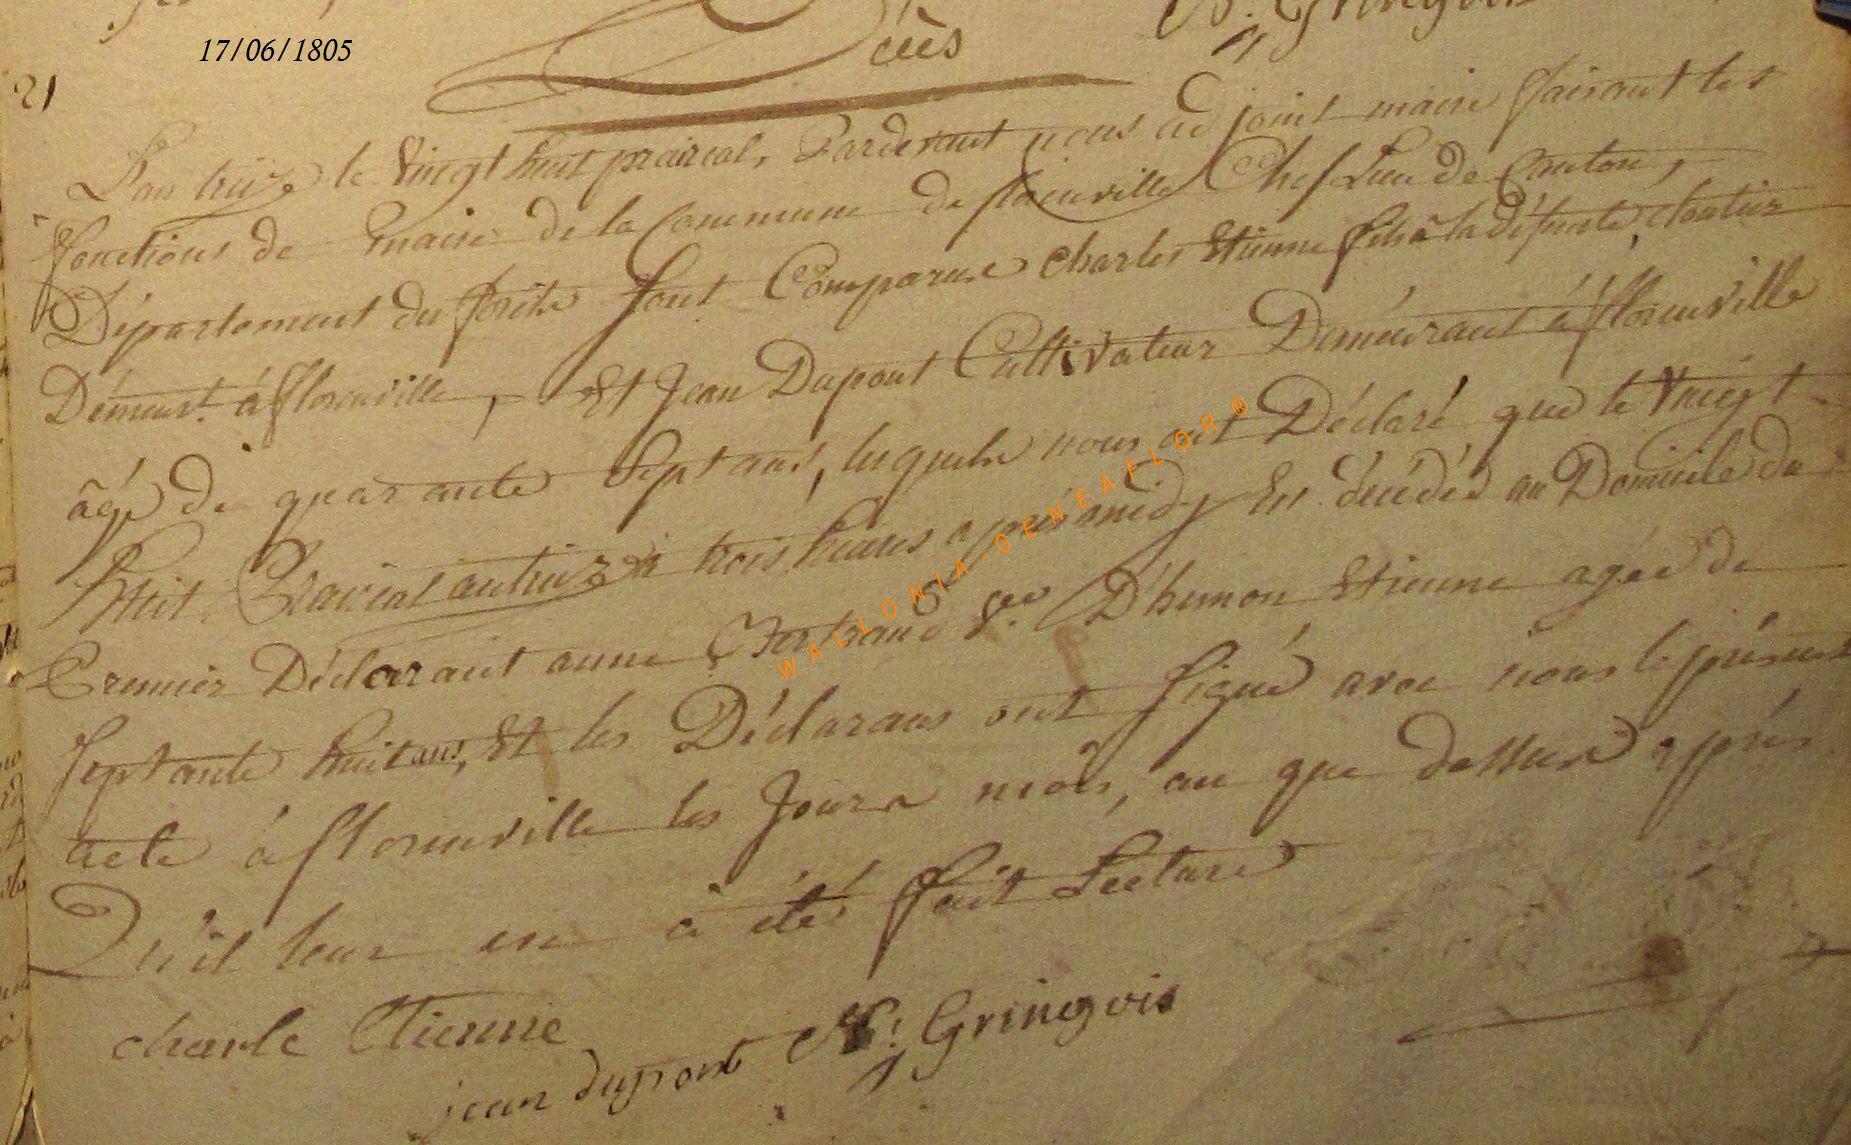 Décès
N. Gringois
17/06/1805
21
L'an treize le vingt huit prairéal, Pardevant nous adjoint maire faisant les
fonctions de maire de la Commune de florenville Chef Lieu de Canton,
Département du forêts sont Comparus charles Etienne fils à la défunte, cloutier
Démeurt. à florenville, Et Jean Dupont Cultivateur Démeurant à florenville
âgé de quarante Sept ans, lesquels nous ont Déclaré que le Vingt
huit Prairial an treize à trois heures après midy Est décédée au Domicile du
Premier Déclarant anne Bertrand Ve. D'humon Etienne agée de
Septante huit ans, Et les Déclarans ont Signé avec nous le présent
acte à florenville les Jour mois, an que dessus après
Qu'il leur en à étés fait Lecture
charle Etienne
jean dupont N. Gringois
WALLONIA-GENEAFLOR®